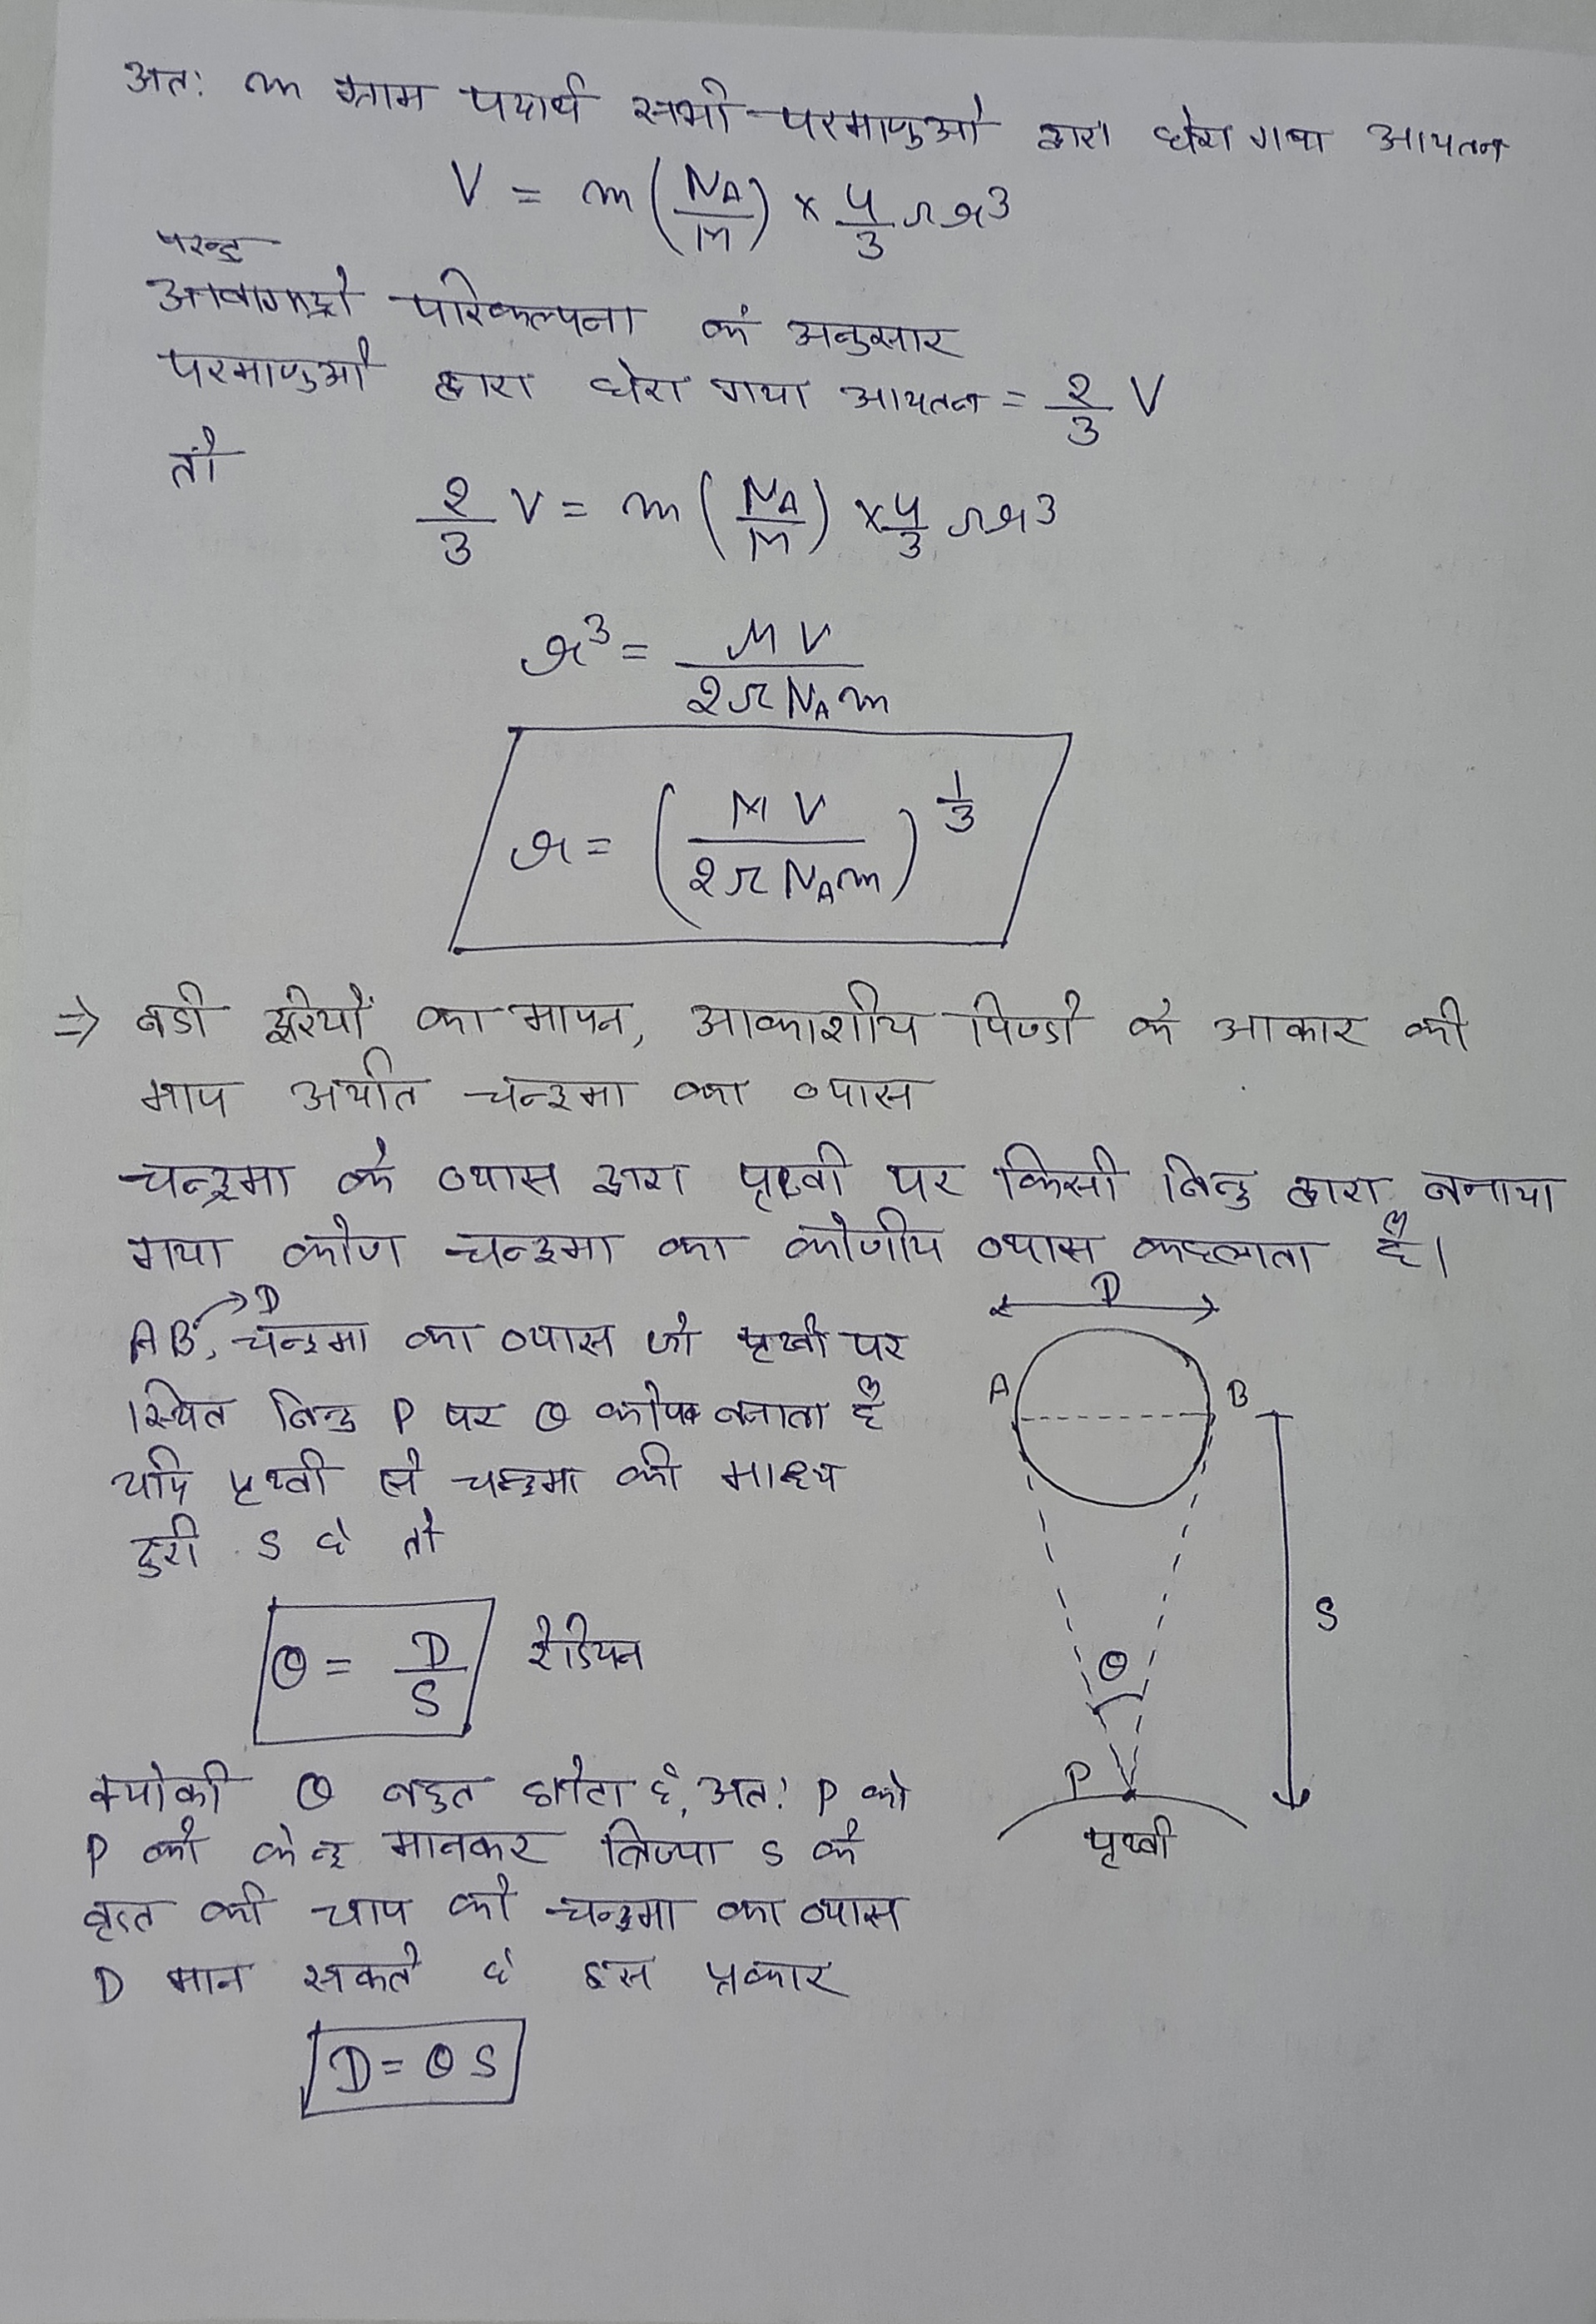 अतः m ग्राम पदार्थ सभी परमाणुओं द्वारा घेरा गया आयतन
V = m (N_A/M) × 4/3 πr³
परन्तु
आवागाद्रो परिकल्पना के अनुसार
परमाणुओं द्वारा घेरा गया आयतन = 2/3 V
तो
2/3 V = m (N_A/M) × 4/3 πr³
r³ = MV/2πN_A m
r = (MV/2πN_A m)^1/3
⇒ बडी दूरियों का मापन, आकाशीय पिण्डो के आकार की
माप अर्थात चन्द्रमा का व्यास
चन्द्रमा के व्यास द्वारा पृथ्वी पर किसी बिन्दु द्वारा बनाया
गया कोण चन्द्रमा का कोणीय व्यास कहलाता है।
AB → D, चन्द्रमा का व्यास जो पृथ्वी पर
स्थित बिन्दु P पर θ कोण बनाता है
यदि पृथ्वी से चन्द्रमा की माध्य
दुरी S है तो
θ = D/S रेडियन
क्योकी θ बहुत छोटा है, अतः P को
P को केन्द्र मानकर त्रिज्या S के
वृत्त की चाप को चन्द्रमा का व्यास
D मान सकते है इस प्रकार
D = θ S
D
A
B
S
θ
P
पृथ्वी